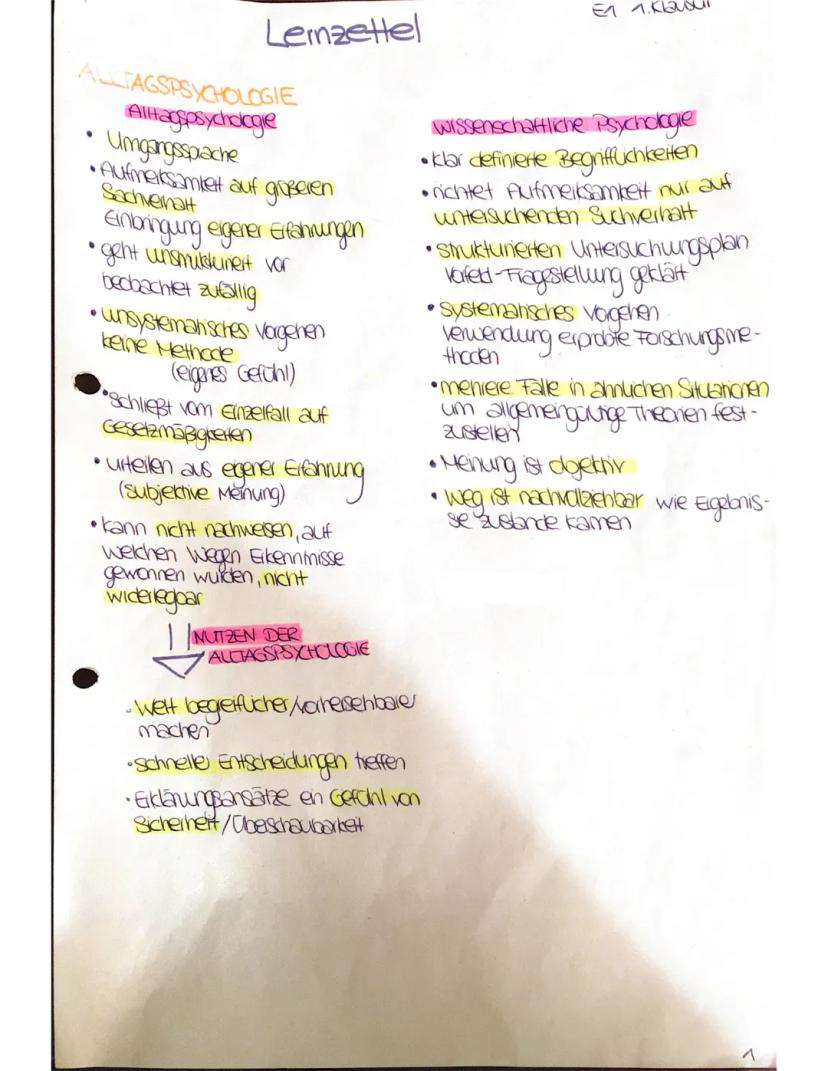 E1 1. Klausur
Lernzettel
ALLTAGSPSYCHOLOGIE
Alltagspsychologie
• Umgangssprache
• Aufmerksamkeit auf größeren
Sachverhalt
Einbringung eigener Erfahrungen
• geht unstrukturiert vor
beobachtet zufällig
• unsystematisches Vorgehen
keine Methode
(eigenes Gefühl)
• schließt vom Einzelfall auf
Gesetzmäßigkeiten
• urteilen aus eigener Erfahrung
(subjektive Meinung)
• kann nicht nachweisen, auf
welchen Wegen Erkenntnisse
gewonnen wurden, nicht
widerlegbar
NUTZEN DER
ALLTAGSPSYCHOLOGIE
• Welt begreiflicher/vorhersehbarer
machen
• schnelle Entscheidungen treffen
• Erklärungsansätze ein Gefühl von
Sicherheit/Überschaubarkeit
wissenschaftliche Psychologie
• klar definierte Begrifflichkeiten
• richtet Aufmerksamkeit nur auf
untersuchenden Suchverhalt
• strukturierten Untersuchungsplan
Vorfeld-Fragestellung geklärt
• systematisches Vorgehen
Verwendung erprobte Forschungsme-
thoden
• mehrere Fälle in ähnlichen Situationen
um allgemeingültige Theorien fest-
zustellen
• Meinung ist objektiv
• Weg ist nachvollziehbar wie Ergebnis-
se zustande kamen
1